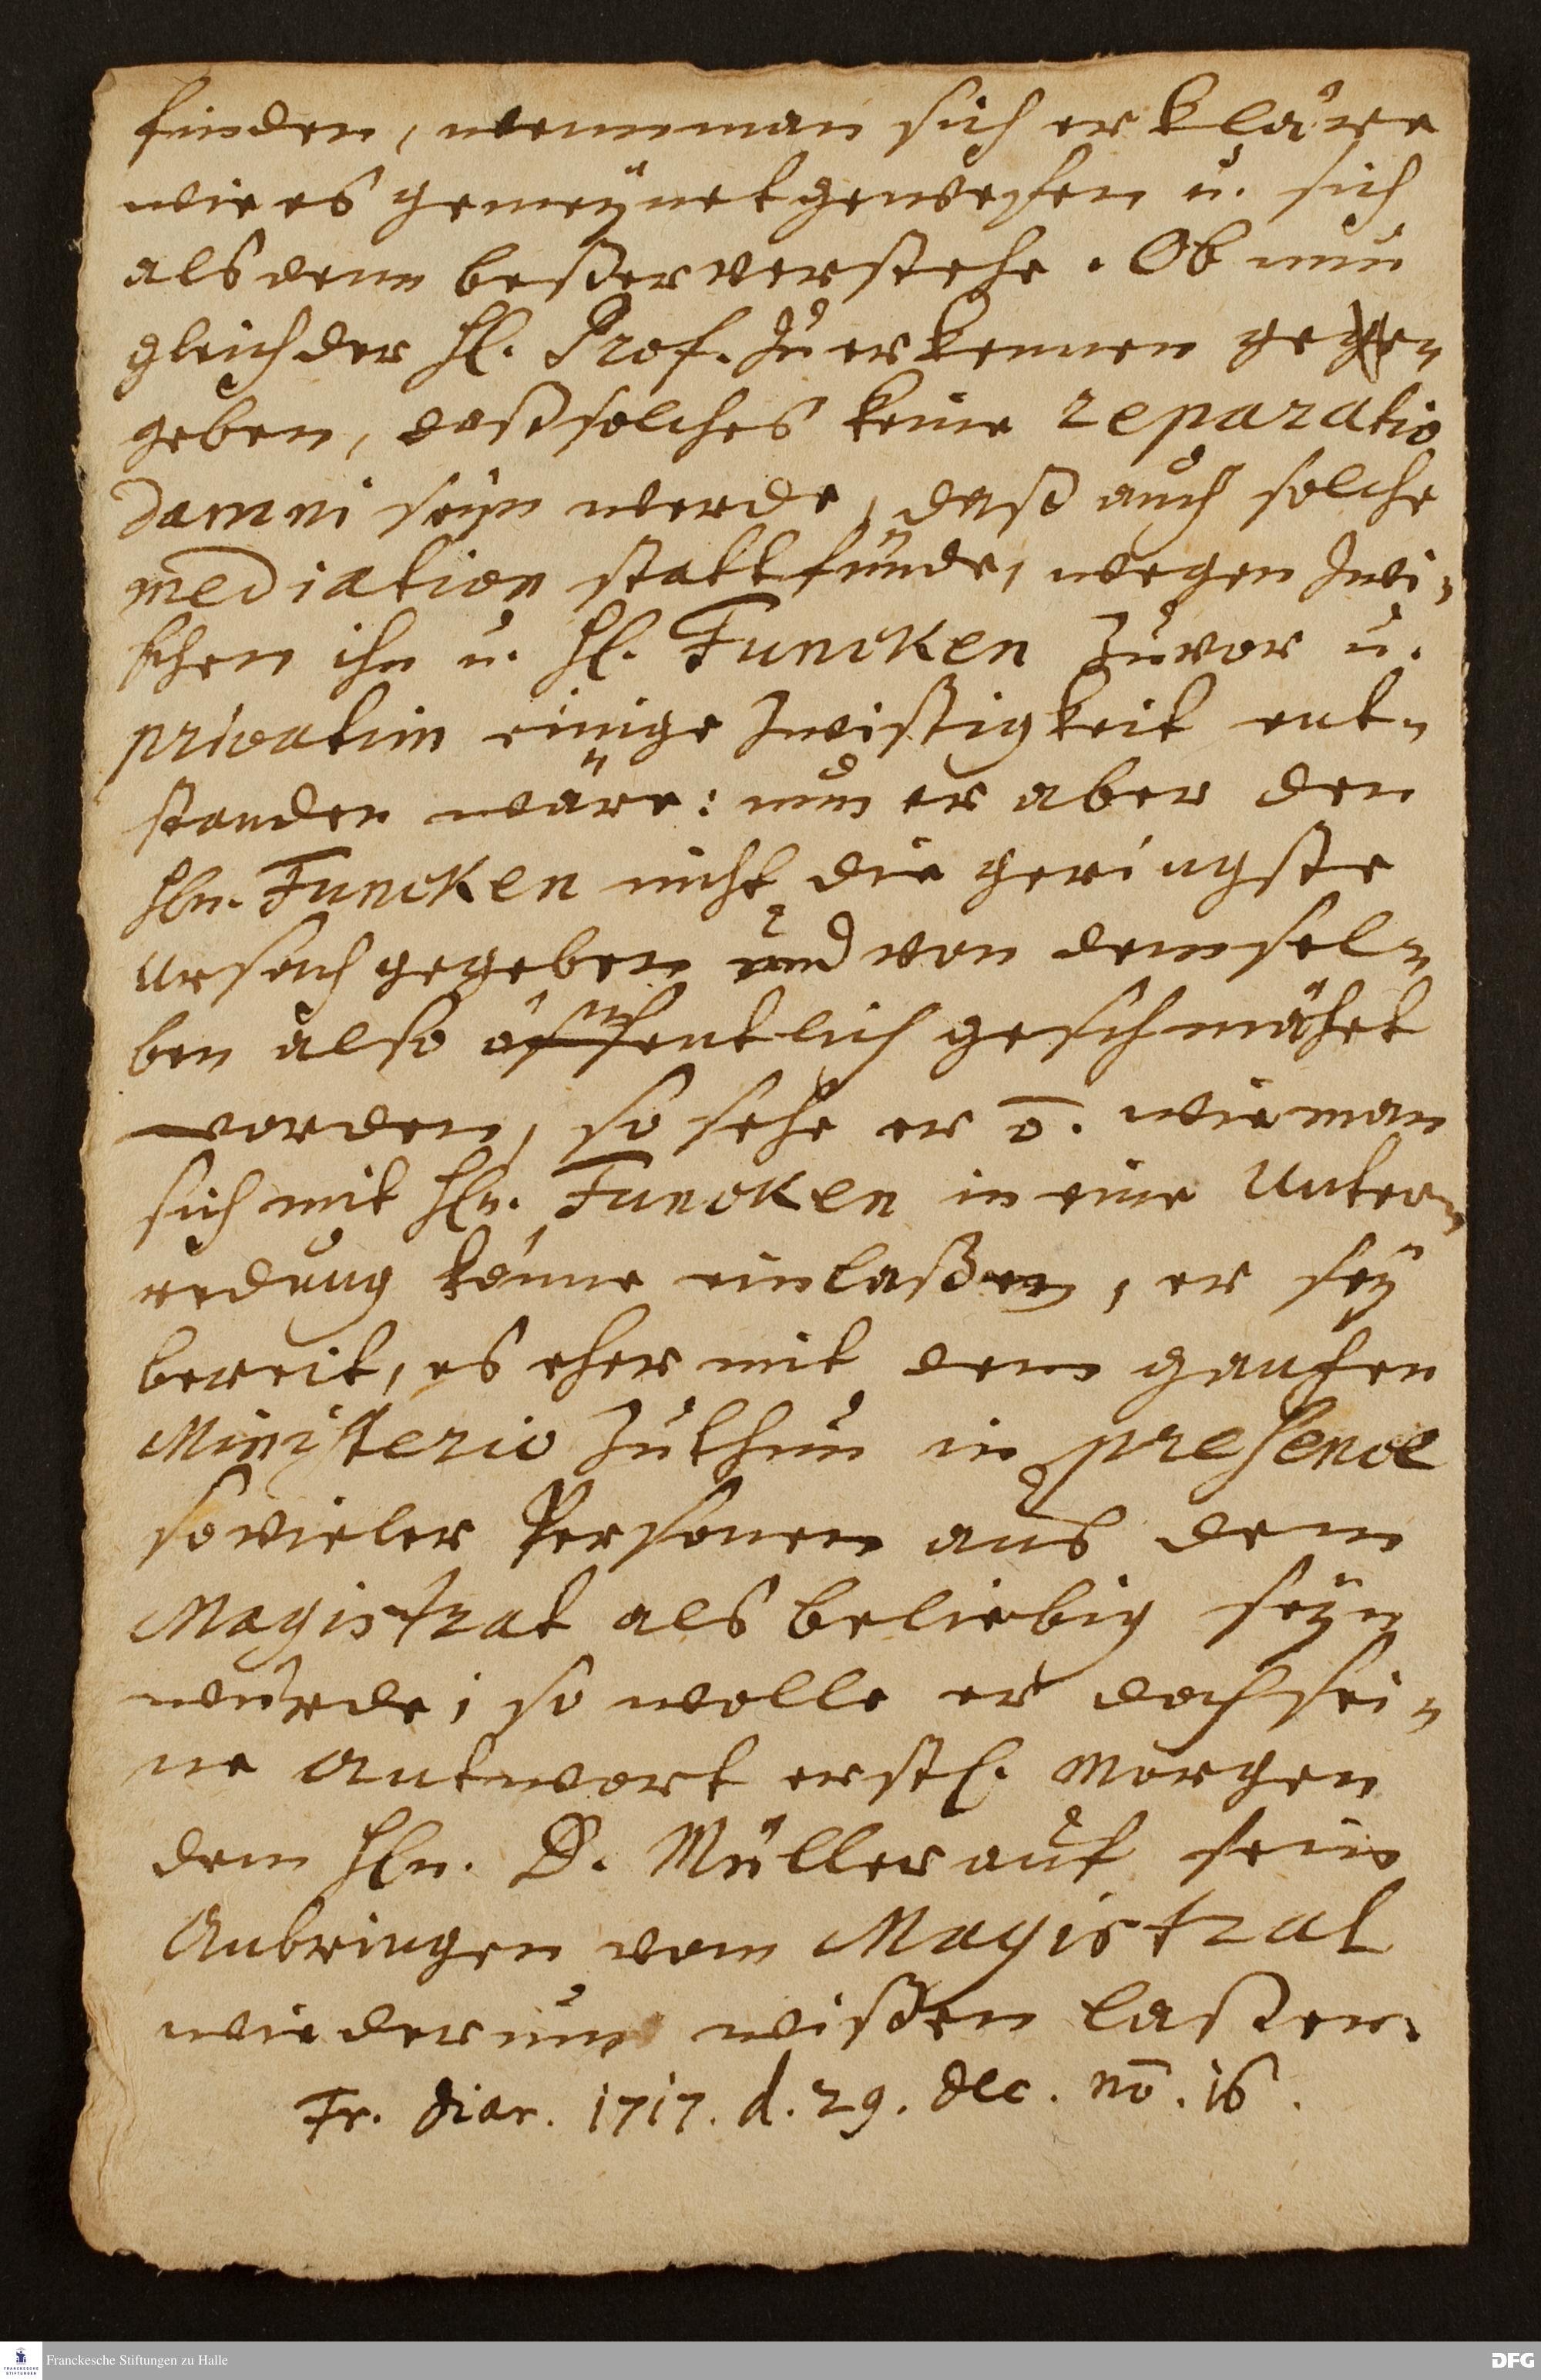 finden, wenn man sich erkläre
wie es gemeÿnet gewesen u. sich
alsdenn beßer verstehe. Ob nun
gleich der H. Prof. zu erkennen ge-
geben, daß solches keine reparatio
damni seyn werde, daß auch solche
mediation statt fünde, wegen zwi-
schen ihn u. H. Funcken zuvor u.
privatim einige Zwistigkeit ent-
standen wäre: nun er aber den
Hln. Funcken nicht die geringste
Ursach gegeben und von demsel-
ben also öffentlich geschmähet
worden, so sehe er o. wie man
sich mit Hln. Funcken in eine Unter-
redung könne einlaßen, er seÿ
bereit, es eher mit dem gantzen
Ministerio zu thun in presence
so vieler Personen aus dem
Magistrat als beliebig seÿn
würde; so wolle er doch sei-
ne Antwort erstl. Morgen
dem Hln. D. Müller auf sein
Anbringen vom Magistrat
wiederum wißen laßen.
Fr. diar. 1717. d. 29. dec. no. 16.
Franckesche Stiftungen zu Halle
FRANCKESCHE
STIFTUNGEN
DFG